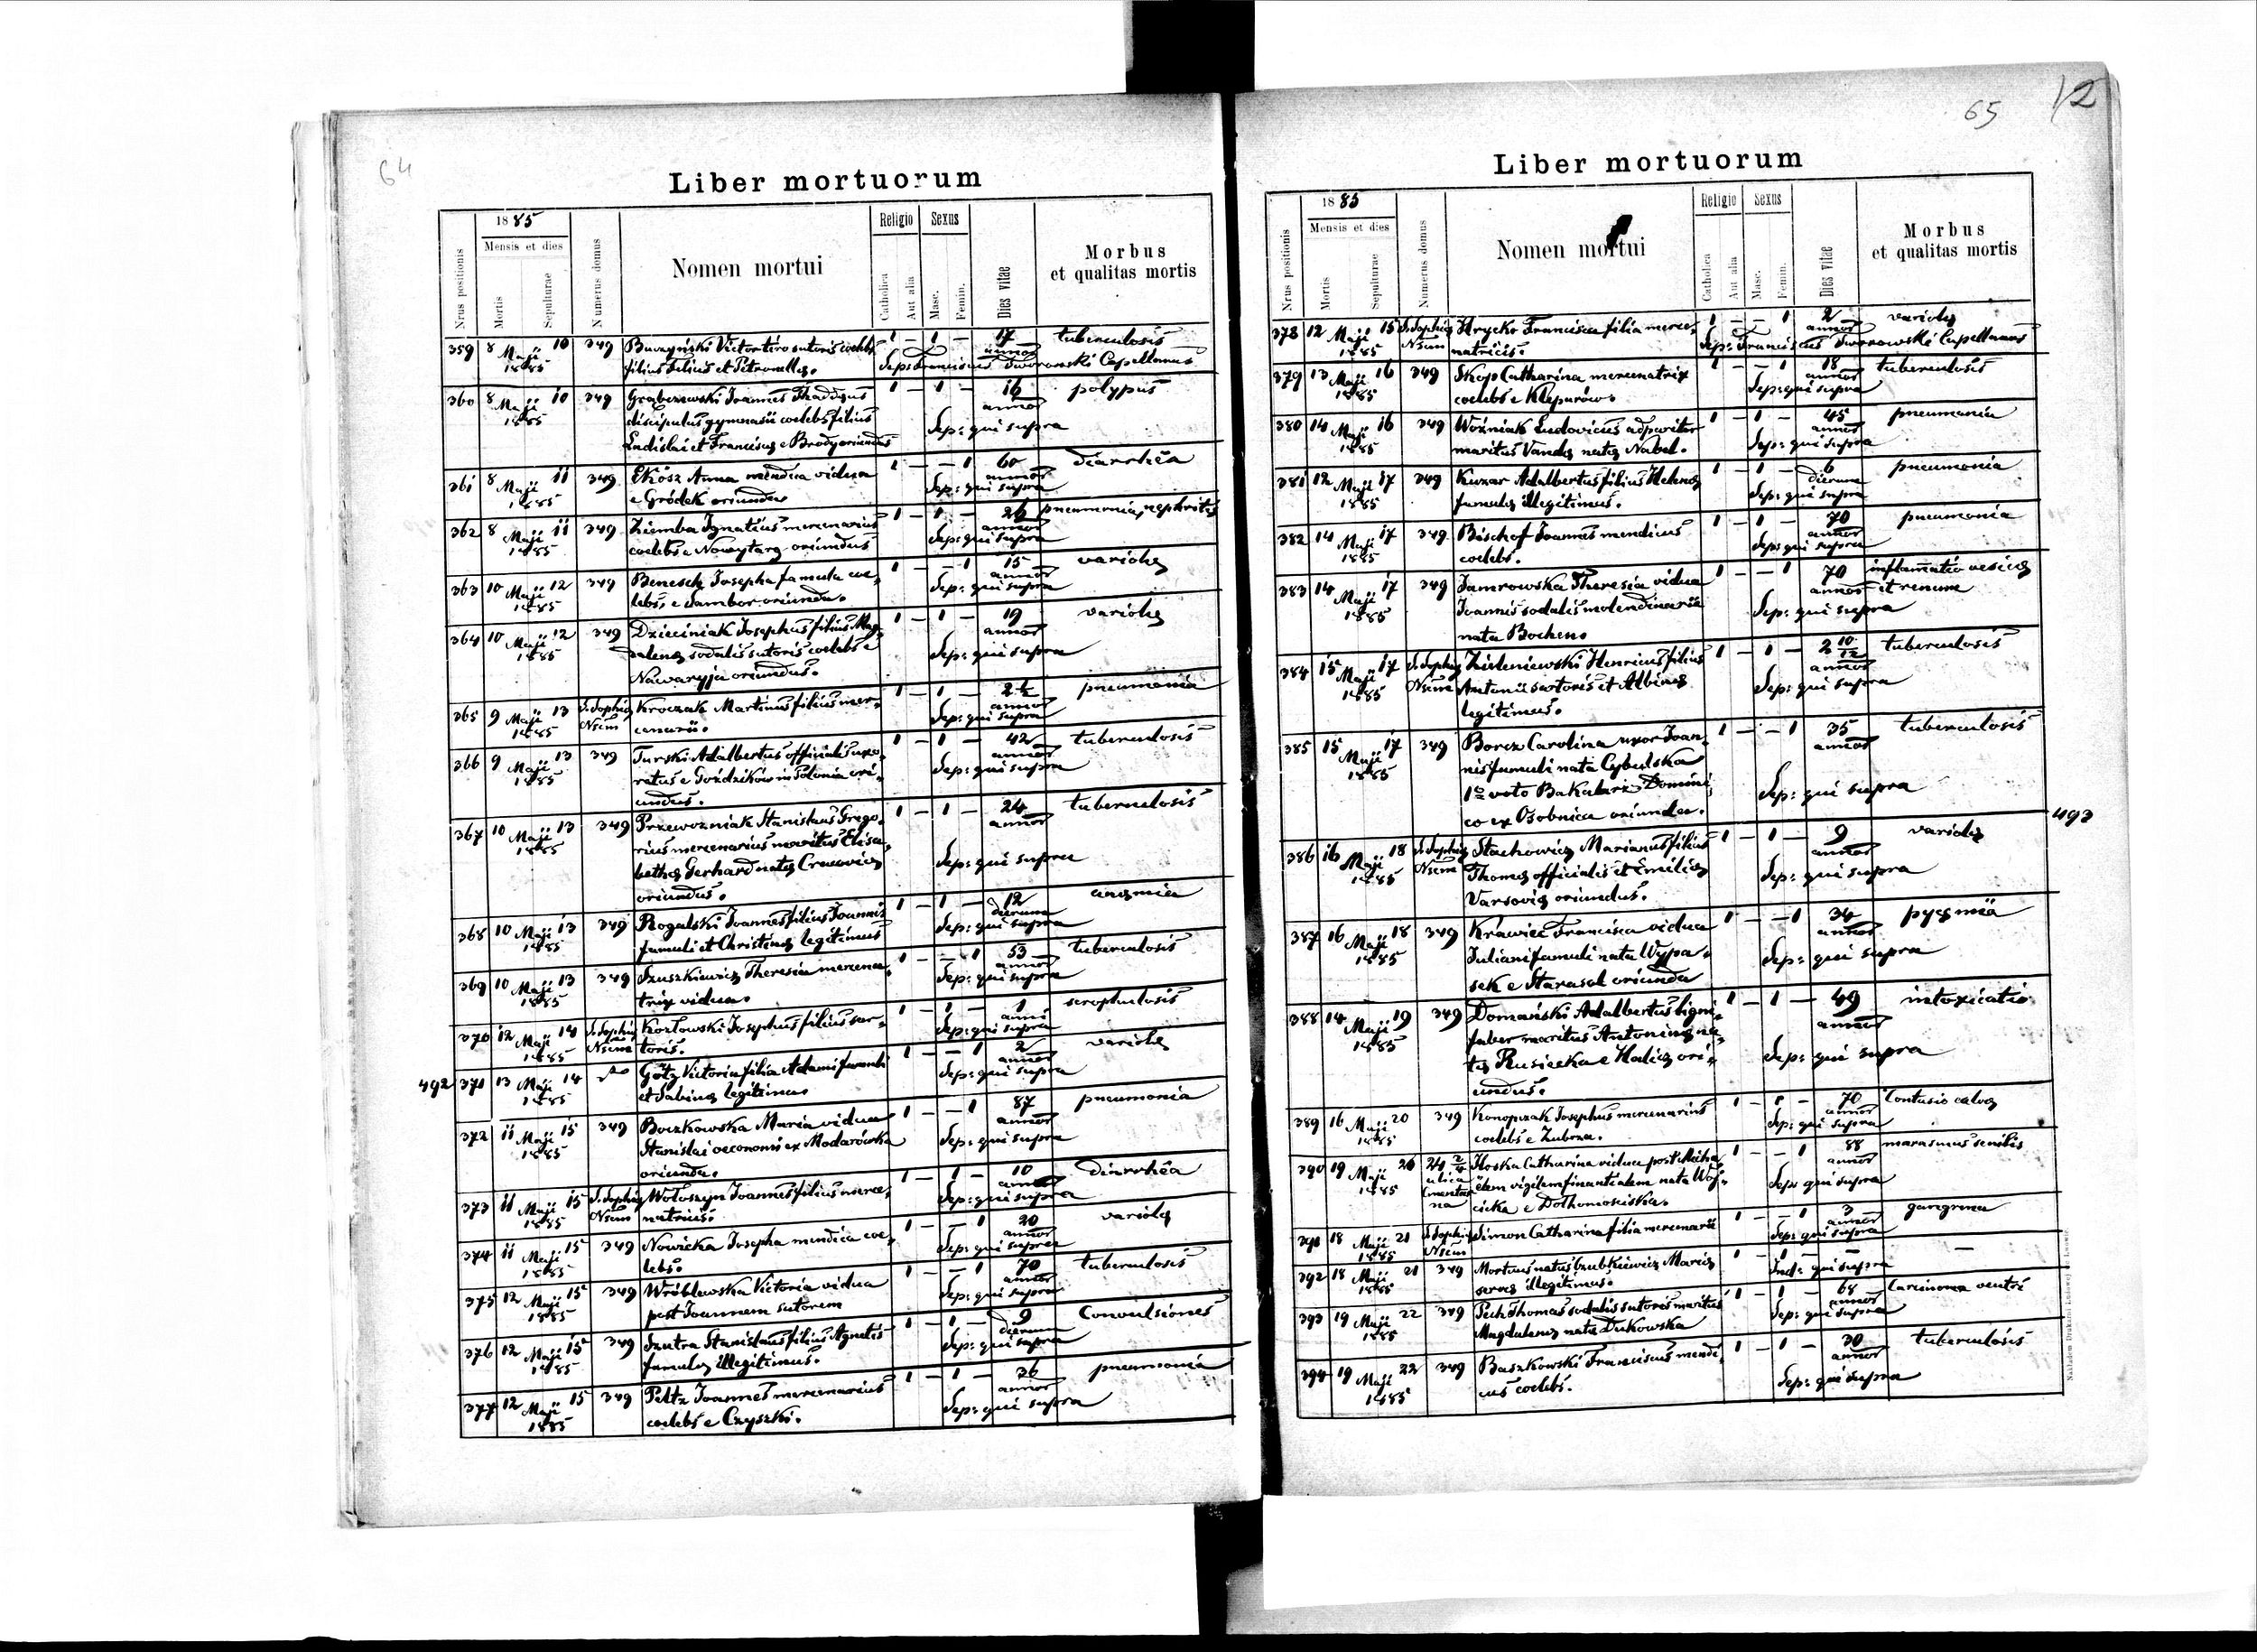 64
Liber mortuorum
1885
Mensis et dies
Nrus positionis
Mortis
Sepulturae
Numerus domus
Nomen mortui
Religio
Catholica
Aut alia
Sexus
Masc.
Femin.
Dies vitae
Morbus
et qualitas mortis
359 8 Maji 10 349 Buczyński Victor tiro sutoris coelebs 1 – 1 – 17 tuberculosis
1885 filius Felius et Petronellę. annor
Sep: Franciscus Dworowski Capellanus
360 8 Maji 10 349 Grabczewski Joannes Thaddęus 1 – 1 – 16 polypus
1885 discipulus gymnasii coelebs filius annor
Ladislai et Franciscę e Brody oriundus Sep: qui supra
361 8 Maji 11 349 Ekósz Anna mendica vidua 1 – – 1 60 diarrhëa
1885 e Gródek oriunda annor Sep: qui supra
362 8 Maji 11 349 Ziemba Ignatius mercenarius 1 – 1 – 26 pneumonia, nephritis
1885 coelebs e Nowytarg oriundus annor Sep: qui supra
363 10 Maji 12 349 Benesch Josepha famula coe- 1 – – 1 15 variolę
1885 lebs, e Sambor oriunda. annor Sep: qui supra
364 10 Maji 12 349 Dzieciniak Josephus filius Mag- 1 – 1 – 19 variolę
1885 dalenę sodalis sutoris coelebs e annor
Nawaryja oriundus. Sep: qui supra
365 9 Maji 13 S. Sophię Kroczak Martinus filius mer- 1 – 1 – 2½ pneumonia
1885 Nsem cenarii. annor Sep: qui supra
366 9 Maji 13 349 Turski Adalbertus officialis uxo- 1 – 1 – 42 tuberculosis
1885 ratus e Goździków in Polonia ori- annor
undus. Sep: qui supra
367 10 Maji 13 349 Przewozniak Stanislaus Grego- 1 – 1 – 24 tuberculosis
1885 rius mercenarius maritus Elisa- annor
bethę Gerhard natę Cracovię Sep: qui supra
oriundus.
368 10 Maji 13 349 Rogalski Joannes filius Joannis 1 – 1 – 12 anęmia
1885 famuli et Christinę legitimus dierum Sep: qui supra
369 10 Maji 13 349 Szuszkiewicz Theresia mercena- 1 – – 1 53 tuberculosis
1885 trix vidua. annor Sep: qui supra
370 12 Maji 14 S. Sophię Kozłowski Josephus filius sar- 1 – 1 – 1 scrophulosis
1885 Nsem toris. anni Sep: qui supra
492 371 13 Maji 14 Götz Victoria filia Adami famuli 1 – – 1 2 variolę
1885 et Sabinę legitima. annor Sep: qui supra
372 11 Maji 15 349 Boczkowska Maria vidua 1 – – 1 87 pneumonia
1885 Stanislai oeconomi ex Modarówka annor
oriunda. Sep: qui supra
373 11 Maji 15 S. Sophię Wołoszyn Joannes filius merce- 1 – 1 – 10 diarrhëa
1885 Nsem natricis. annor Sep: qui supra
374 11 Maji 15 349 Nowicka Josepha mendica coe- 1 – – 1 20 variolę
1885 lebs. annor Sep: qui supra
375 12 Maji 15 349 Wróblewska Victoria vidua 1 – – 1 70 tuberculosis
1885 post Joannem sutorem annor Sep: qui supra
376 12 Maji 15 349 Szutra Stanislaus filius Agnetis 1 – 1 – 9 Convulsiones
1885 famulę illegitimus. dierum Sep: qui supra
377 12 Maji 15 349 Peltz Joannes mercenarius 1 – 1 – 36 pneumonia
1885 coelebs e Czyszki. annor Sep: qui supra
65 12
Liber mortuorum
1885
Mensis et dies
Nrus positionis
Mortis
Sepulturae
Numerus domus
Nomen mortui
Religio
Catholica
Aut alia
Sexus
Masc.
Femin.
Dies vitae
Morbus
et qualitas mortis
378 12 Maji 15 S. Sophię Hrycko Francisca filia merce- 1 – – 1 2 variolę
1885 Nsem natricis. annor Sep: Franciscus Dworowski Capellanus
379 13 Maji 16 349 Skop Catharina mercenatrix 1 – – 1 18 tuberculosis
1885 coelebs e Kleparów. annor Sep: qui supra
380 14 Maji 16 349 Woźniak Ludovicus adparitor 1 – 1 – 45 pneumonia
1885 maritus Vandę natę Nabel. annor Sep: qui supra
381 12 Maji 17 349 Kuzar Adalbertus filius Helenę 1 – 1 – 6 pneumonia
1885 famulę illegitimus. dierum Sep: qui supra
382 14 Maji 17 349 Bischof Joannes mendicus 1 – 1 – 70 pneumonia
1885 coelebs. annor Sep: qui supra
383 14 Maji 17 349 Jamrowska Theresia vidua 1 – – 1 70 inflammatio vesicę
1885 Joannis sodalis molendinarii annor et renum
nata Bochen. Sep: qui supra
384 15 Maji 17 S. Sophię Zieleniewski Henricus filius 1 – 1 – 2 10/12 tuberculosis
1885 Nsem Antonii sartoris et Albinę annor
legitimus. Sep: qui supra
385 15 Maji 17 349 Borcz Carolina uxor Joan- 1 – – 1 35 tuberculosis
1885 nis famuli nata Cybulska annor
1o voto Bakalarz Domini- Sep: qui supra
co ex Osobnica oriunda.
493
386 16 Maji 18 S. Sophię Stachowicz Marianus filius 1 – 1 – 9 variolę
1885 Nsem Thomę officialis et Emilię annor
Varsovię oriundus. Sep: qui supra
387 16 Maji 18 349 Krawiec Francisca vidua 1 – – 1 34 pyęmia
1885 Juliani famuli nata Wypa- annor
sek e Starasol oriunda Sep: qui supra
388 14 Maji 19 349 Domański Adalbertus ligni- 1 – 1 – 49 intoxicatio
1885 faber maritus Antoninę na- annor
tę Rusiecka e Halicz ori- Sep: qui supra
undus.
389 16 Maji 20 349 Konopczak Josephus mercenarius 1 – 1 – 70 Contusio calvę
1885 coelebs e Zubrza. annor Sep: qui supra
390 19 Maji 20 24 2/4 Hoska Catharina vidua post Micha- 1 – – 1 88 marasmus senilis
1885 ulica ëlem vigilem finantialem nata Woj- annor
Cmentar cicka e Dołhomościska. Sep: qui supra
na
391 18 Maji 21 S. Sophię Simon Catharina filia mercenarii 1 – – 1 3 gangrena
1885 Nsem annor Sep: qui supra
392 18 Maji 21 349 Mortuus natus Czubkiewicz Marię 1 – 1 – – –
1885 servę illegitimus. Ind: qui supra
393 19 Maji 22 349 Pech Thomas sodalis sutoris maritus 1 – 1 – 68 Carcinoma ventri
1885 Magdalenę nata Dukowska annor Sep: qui supra
394 19 Maji 22 349 Baszkowski Franciscus mendi- 1 – 1 – 30 tuberculosis
1885 cus coelebs. annor Sep: qui supra